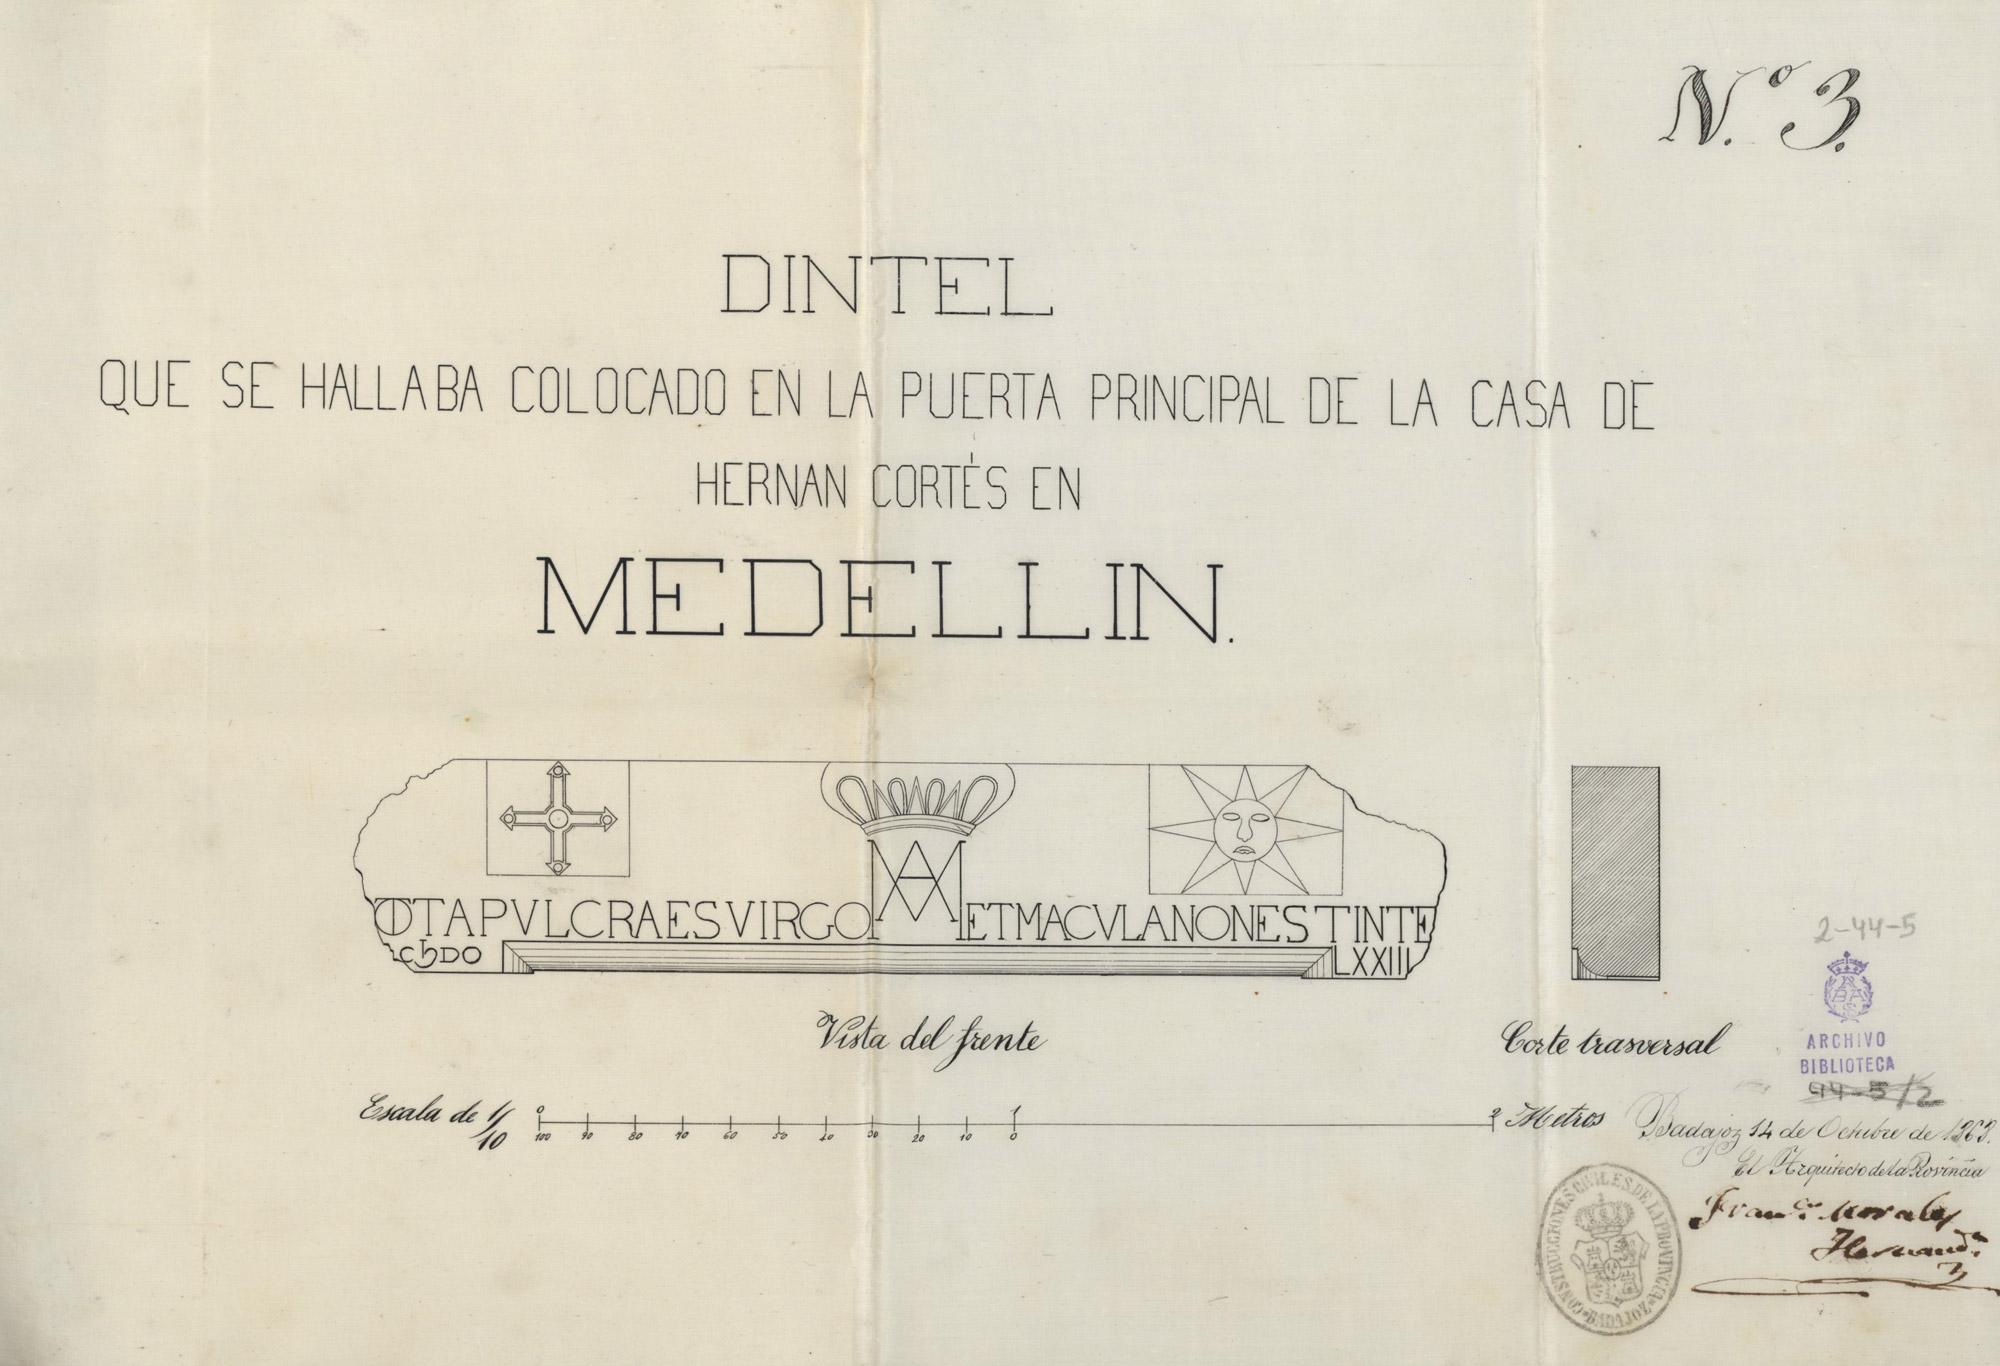 N.º 3.
DINTEL
QUE SE HALLABA COLOCADO EN LA PUERTA PRINCIPAL DE LA CASA DE
HERNAN CORTÉS EN
MEDELLIN.
TAPVLCRAESVIRGO MA ETMACVLANONESTINTE
LXXIII
Vista del frente
Corte trasversal
2-44-5
ARCHIVO
BIBLIOTECA
44-5/2
Escala de 1/10
0 1 2 Metros
100 90 80 70 60 50 40 30 20 10 0
Badajoz 14 de Octubre de 1863.
El Arquitecto de la Provincia
Fran.co Morales
Hernandz
CONSTRUCCIONES CIVILES DE LA PROVINCIA
BADAJOZ